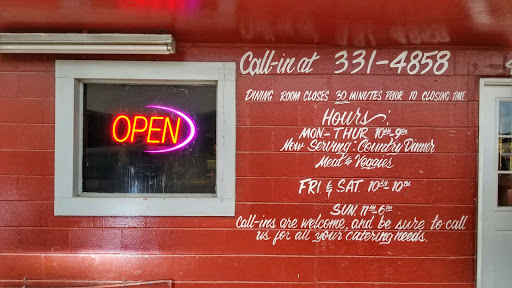 Call-in at 331-4858
DINING ROOM CLOSES 30 MINUTES PRIOR TO CLOSING TIME
Hours:
MON-THUR 10AM-9PM
Now Serving: Country Dinner
Meat & Veggies
FRI & SAT 10AM-10PM
SUN. 11AM-6PM
Call-ins are welcome, and be sure to call
us for all your catering needs.
OPEN